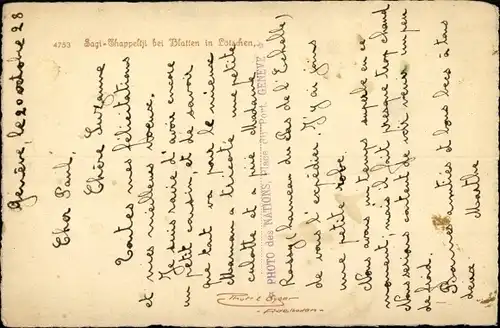 4753 Sagi-Chappeltji bei Blatten in Lötschen.
Genève, le 20 octobre 28
Cher Paul,
Chère Suzanne
Toutes mes félicitations
et mes meilleurs voeux.
Je suis ravie d'avoir encore
un petit cousin, et de savoir
que tout va pour le mieux
Maman a tricoté une petite
culotte et a prié Madame
Rossy (hameau du Pas de l'Echelle)
de vous l'expédier. J'y ai joins
une petite robe.
Nous avons un temps superbe en ce
moment, mais il fait presque trop chaud
Nous serions content de voir venir un peu
de froid.
Bonnes amitiés et bons baisers à tous
deux.
Marthe
PHOTO des NATIONS, Place du Port, GENÈVE